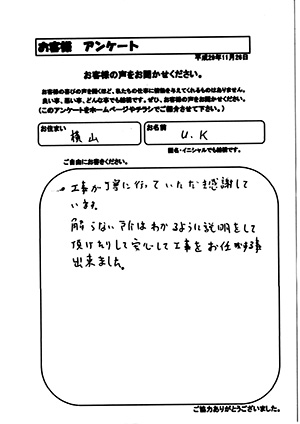 お客様 アンケート
平成29年11月26日
お客様の声をお聞かせください。
お客様の喜びの声を聞くほど、私たちの仕事に情熱を与えてくれるものはありません。
良い事、悪い事、どんな事でも結構です。ぜひ、お客様の声をお聞かせください。
(このアンケートをホームページやチラシでご紹介させて下さい。)
お住まい 横山
お名前 U.K
匿名・イニシャルでも結構です。
ご自由にお書きください。
工事が丁寧に行っていただき感謝して
います。
解らない所はわかるように説明をして
頂けたりして安心して工事をお任かせする事
出来ました。
ご協力ありがとうございました。